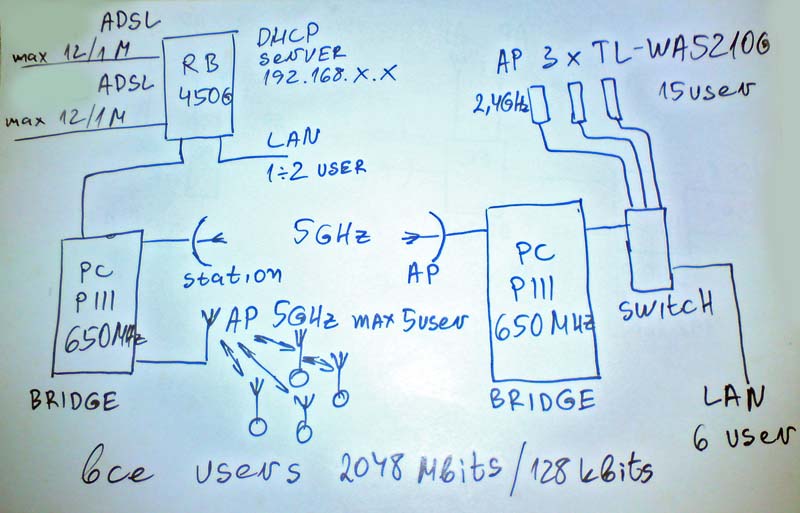 ADSL
max 12/1 M
ADSL
max 12/1 M
RB
450G
DHCP
SERVER
192.168.X.X
LAN
1÷2 USER
AP 3 x TL-WA5210G
2,4GHz
15 user
PC
PIII
650MHz
BRIDGE
station
5GHz
AP
AP 5GHz max 5 user
PC
PIII
650MHz
BRIDGE
SWITCH
LAN
6 user
все users 2048 Mbits/128 kbits